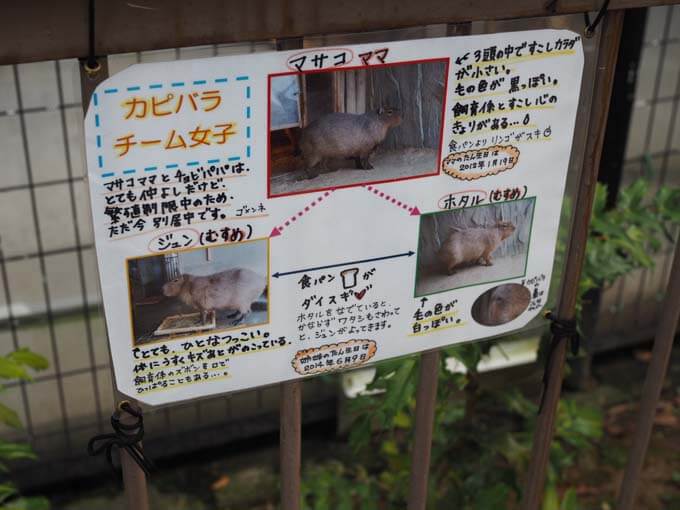 カピバラ
チーム女子
マサコママとチョビパパは、
とても仲よしだけど、
繁殖制限中のため、
ただ今 別居中です。ゴメンネ
マサコ ママ
←3頭の中ですこしカラダ
が小さい。
毛の色が黒っぽい。
飼育係とすこし心の
きょりがある…
食パンよりリンゴがスキ
ママのたん生日は
2012年1月19日
ジュン(むすめ)
ホタル(むすめ)
食パン が
ダイスキ
ホタルをなでていると、
かならずワタシもさわって
と、ジュンがよってきます。
姉妹のたん生日は
2014年6月9日
↑とても、ひとなつっこい。
体にうすくキズあとがのこっている。
飼育係のズボンを口で
ひっぱることもある…。
↑
毛の色が
白っぽい。